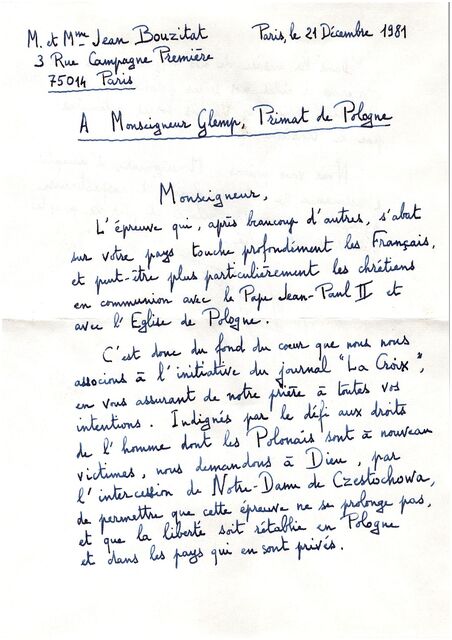 M. et Mme Jean Bouzitat
Paris, le 21 Décembre 1981
3 Rue Campagne Première
75014 Paris
A Monseigneur Glemp, Primat de Pologne
Monseigneur,
L'épreuve qui, après beaucoup d'autres, s'abat
sur votre pays touche profondément les Français,
et peut-être plus particulièrement les chrétiens
en communion avec le Pape Jean-Paul II et
avec l'Eglise de Pologne.
C'est donc du fond du coeur que nous nous
associons à l'initiative du journal "La Croix",
en vous assurant de notre prière à toutes vos
intentions. Indignés par le défi aux droits
de l'homme dont les Polonais sont à nouveau
victimes, nous demandons à Dieu, par
l'intercession de Notre-Dame de Czestochowa,
de permettre que cette épreuve ne se prolonge pas,
et que la liberté soit rétablie en Pologne
et dans les pays qui en sont privés.